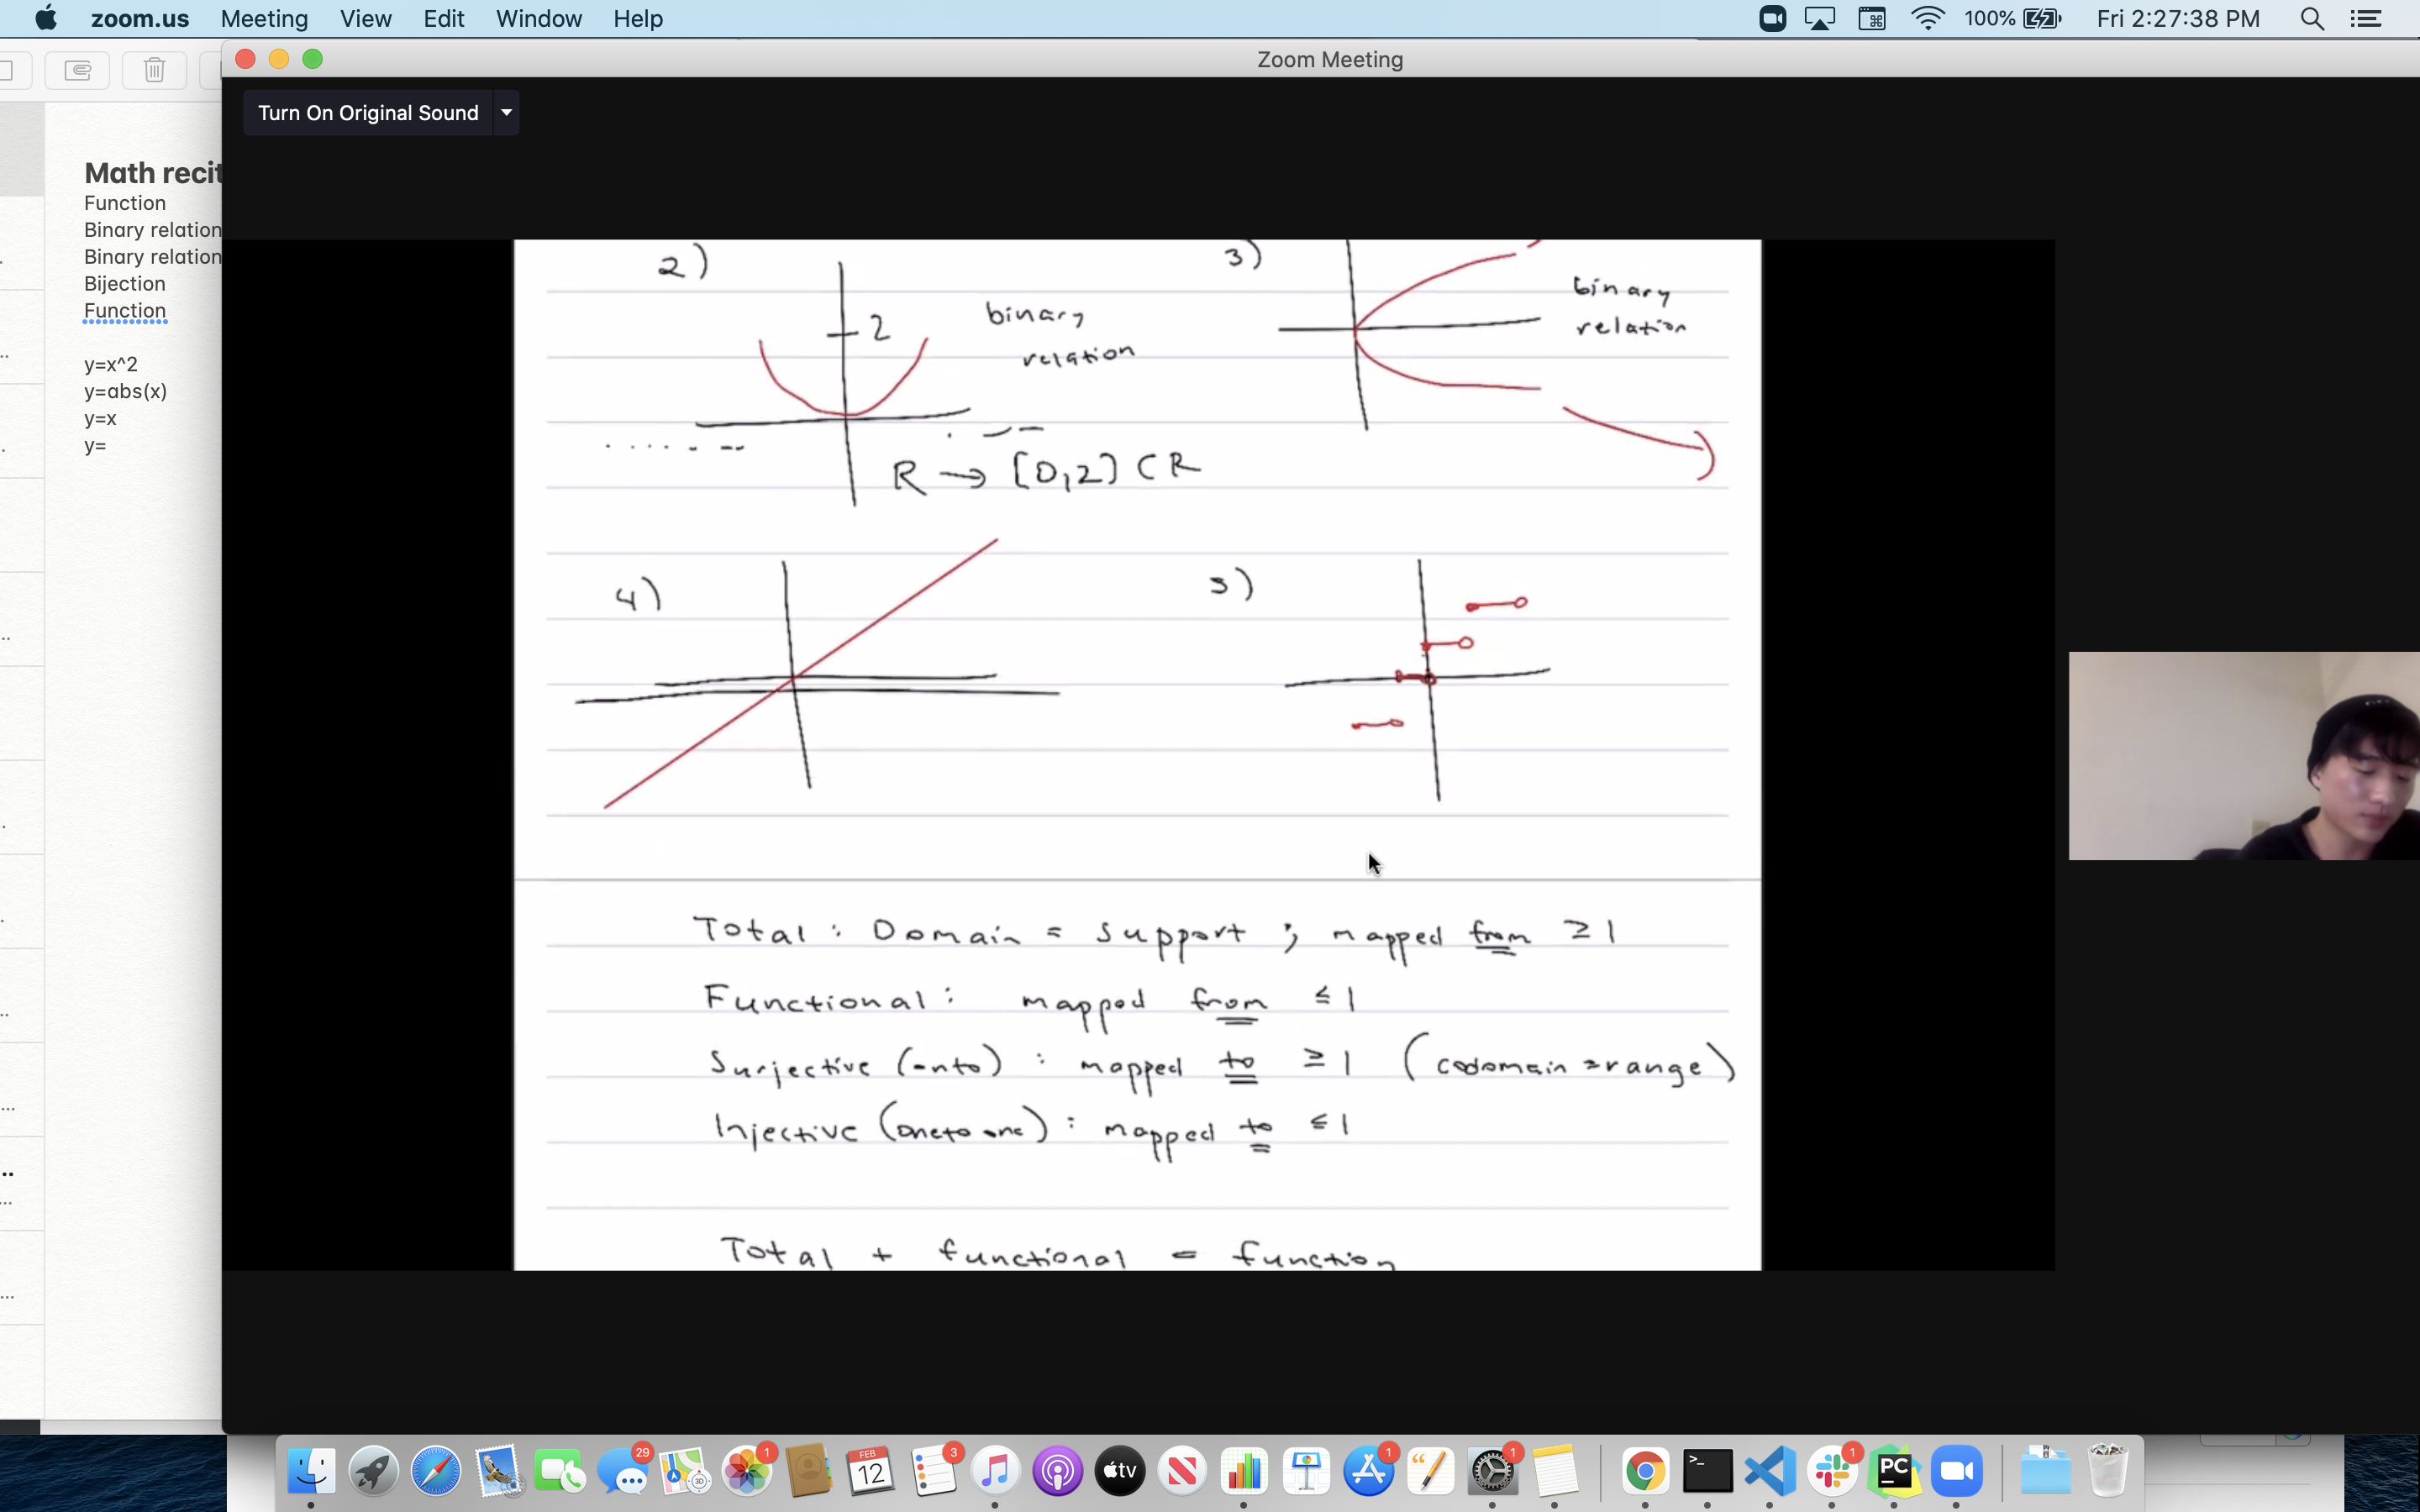 zoom.us Meeting View Edit Window Help
100% Fri 2:27:38 PM
Zoom Meeting
Turn On Original Sound
Math recit
Function
Binary relation
Binary relation
Bijection
Function
y=x^2
y=abs(x)
y=x
y=
2)
2
binary
relation
R → [0,2] ⊂ R
3)
binary
relation
4)
5)
Total : Domain = support ; mapped from ≥ 1
Functional : mapped from ≤ 1
Surjective (onto) : mapped to ≥ 1 (codomain = range)
Injective (one to one) : mapped to ≤ 1
Total + functional = function
29
3D
1
FEB
12
3
tv
1
1
>_
1
PC